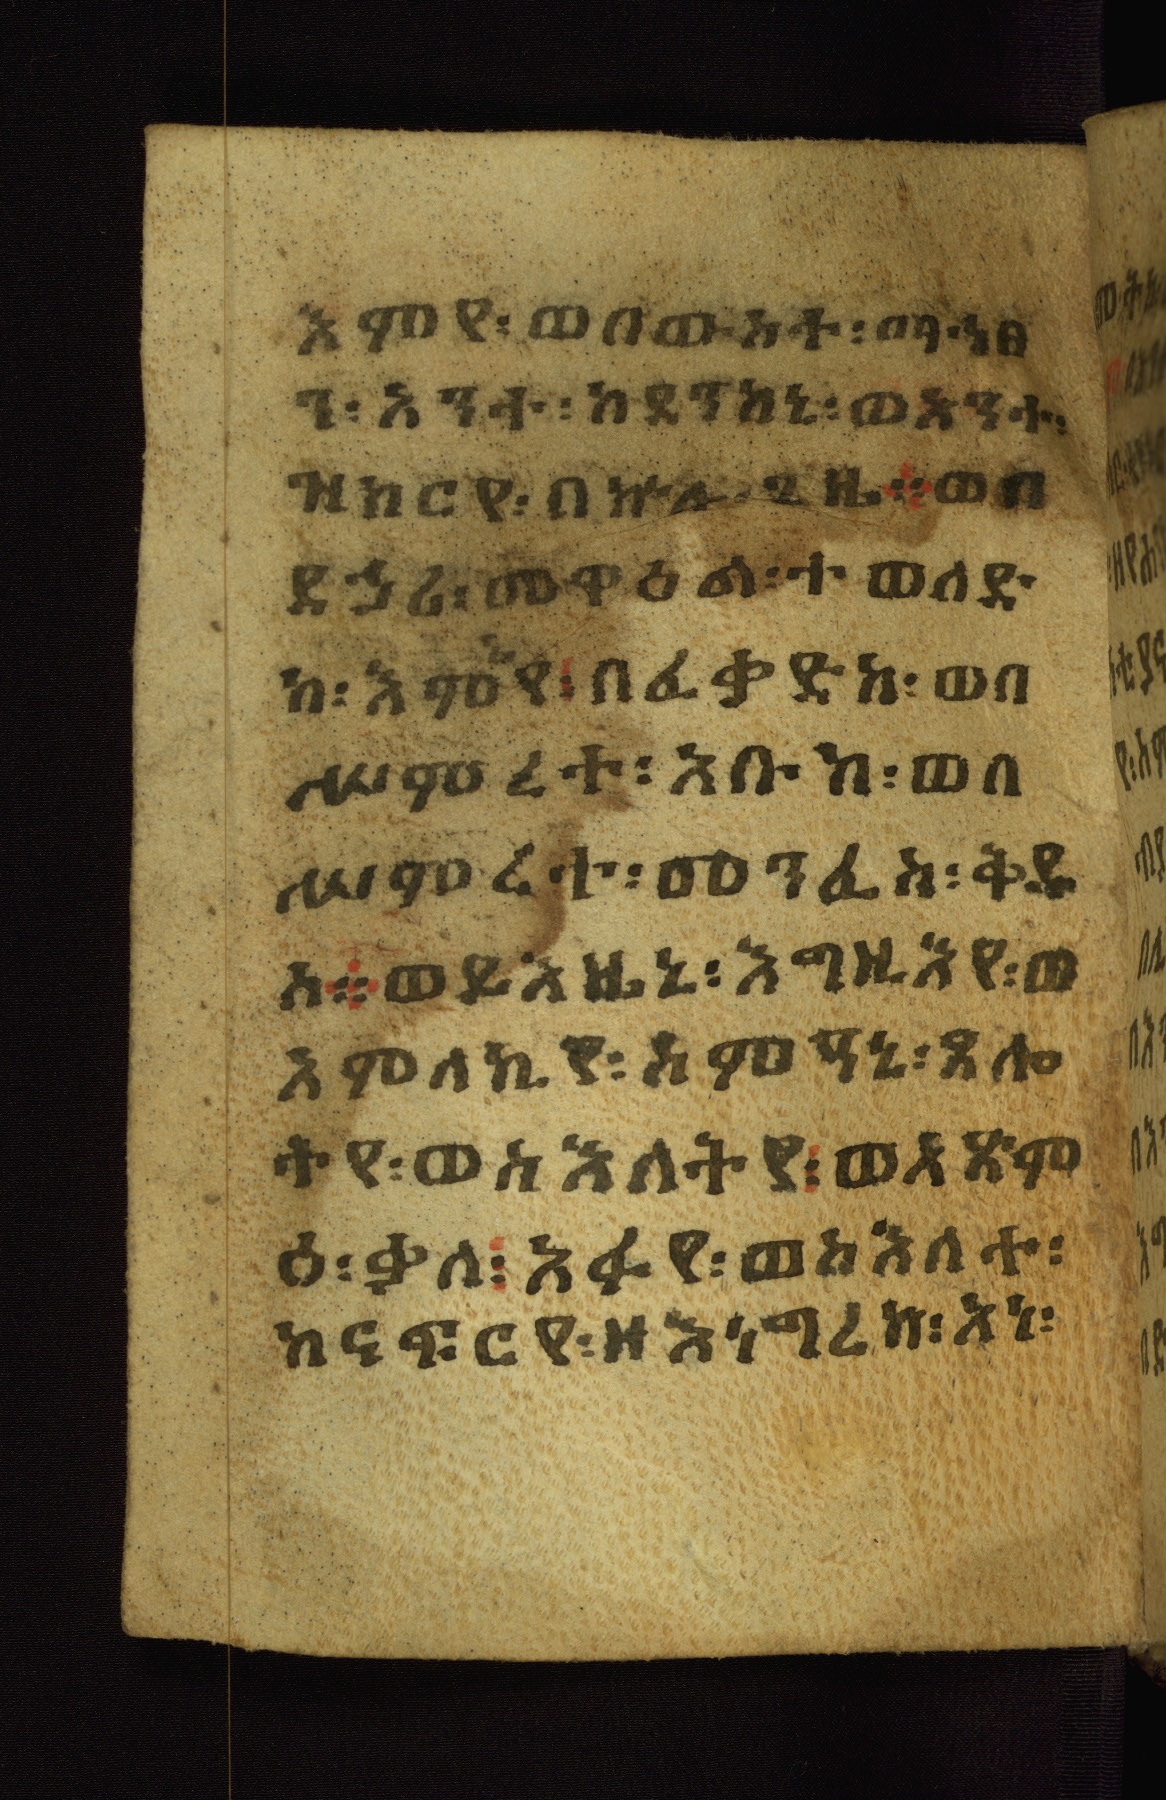 እምየ፡ ወበውእቱ፡ ማኅፀ
ን፡ አንተ፡ ከደንከኒ፡ ወአንተ፡
ዝከርየ፡ በኵሉ፡ ጊዜ። ወበ
ደኃሪ፡ መዋዕል፡ ተወለድ
ከ፡ እምኔየ፡ በፈቃድከ፡ ወበ
ሥምረተ፡ አቡከ፡ ወበ
ሥምረተ፡ መንፈስ፡ ቅዱ
ስ። ወይእዜኒ፡ እግዚእየ፡ ወ
አምላኪየ፡ ስምዓኒ፡ ጸሎ
ትየ፡ ወስእለትየ፡ ወአጽም
ዕ፡ ቃለ፡ አፉየ፡ ወስእለተ፡
ከናፍርየ፡ ዘእነግረከ፡ አነ፡